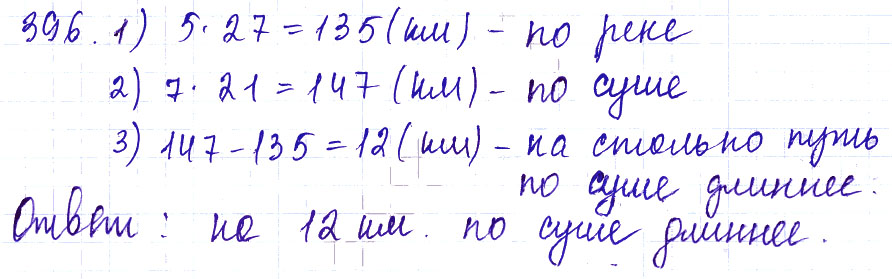 396. 1) 5 · 27 = 135 (км) - по реке
2) 7 · 21 = 147 (км) - по суше
3) 147 - 135 = 12 (км) - на столько путь
по суше длиннее.
Ответ: на 12 км. по суше длиннее.